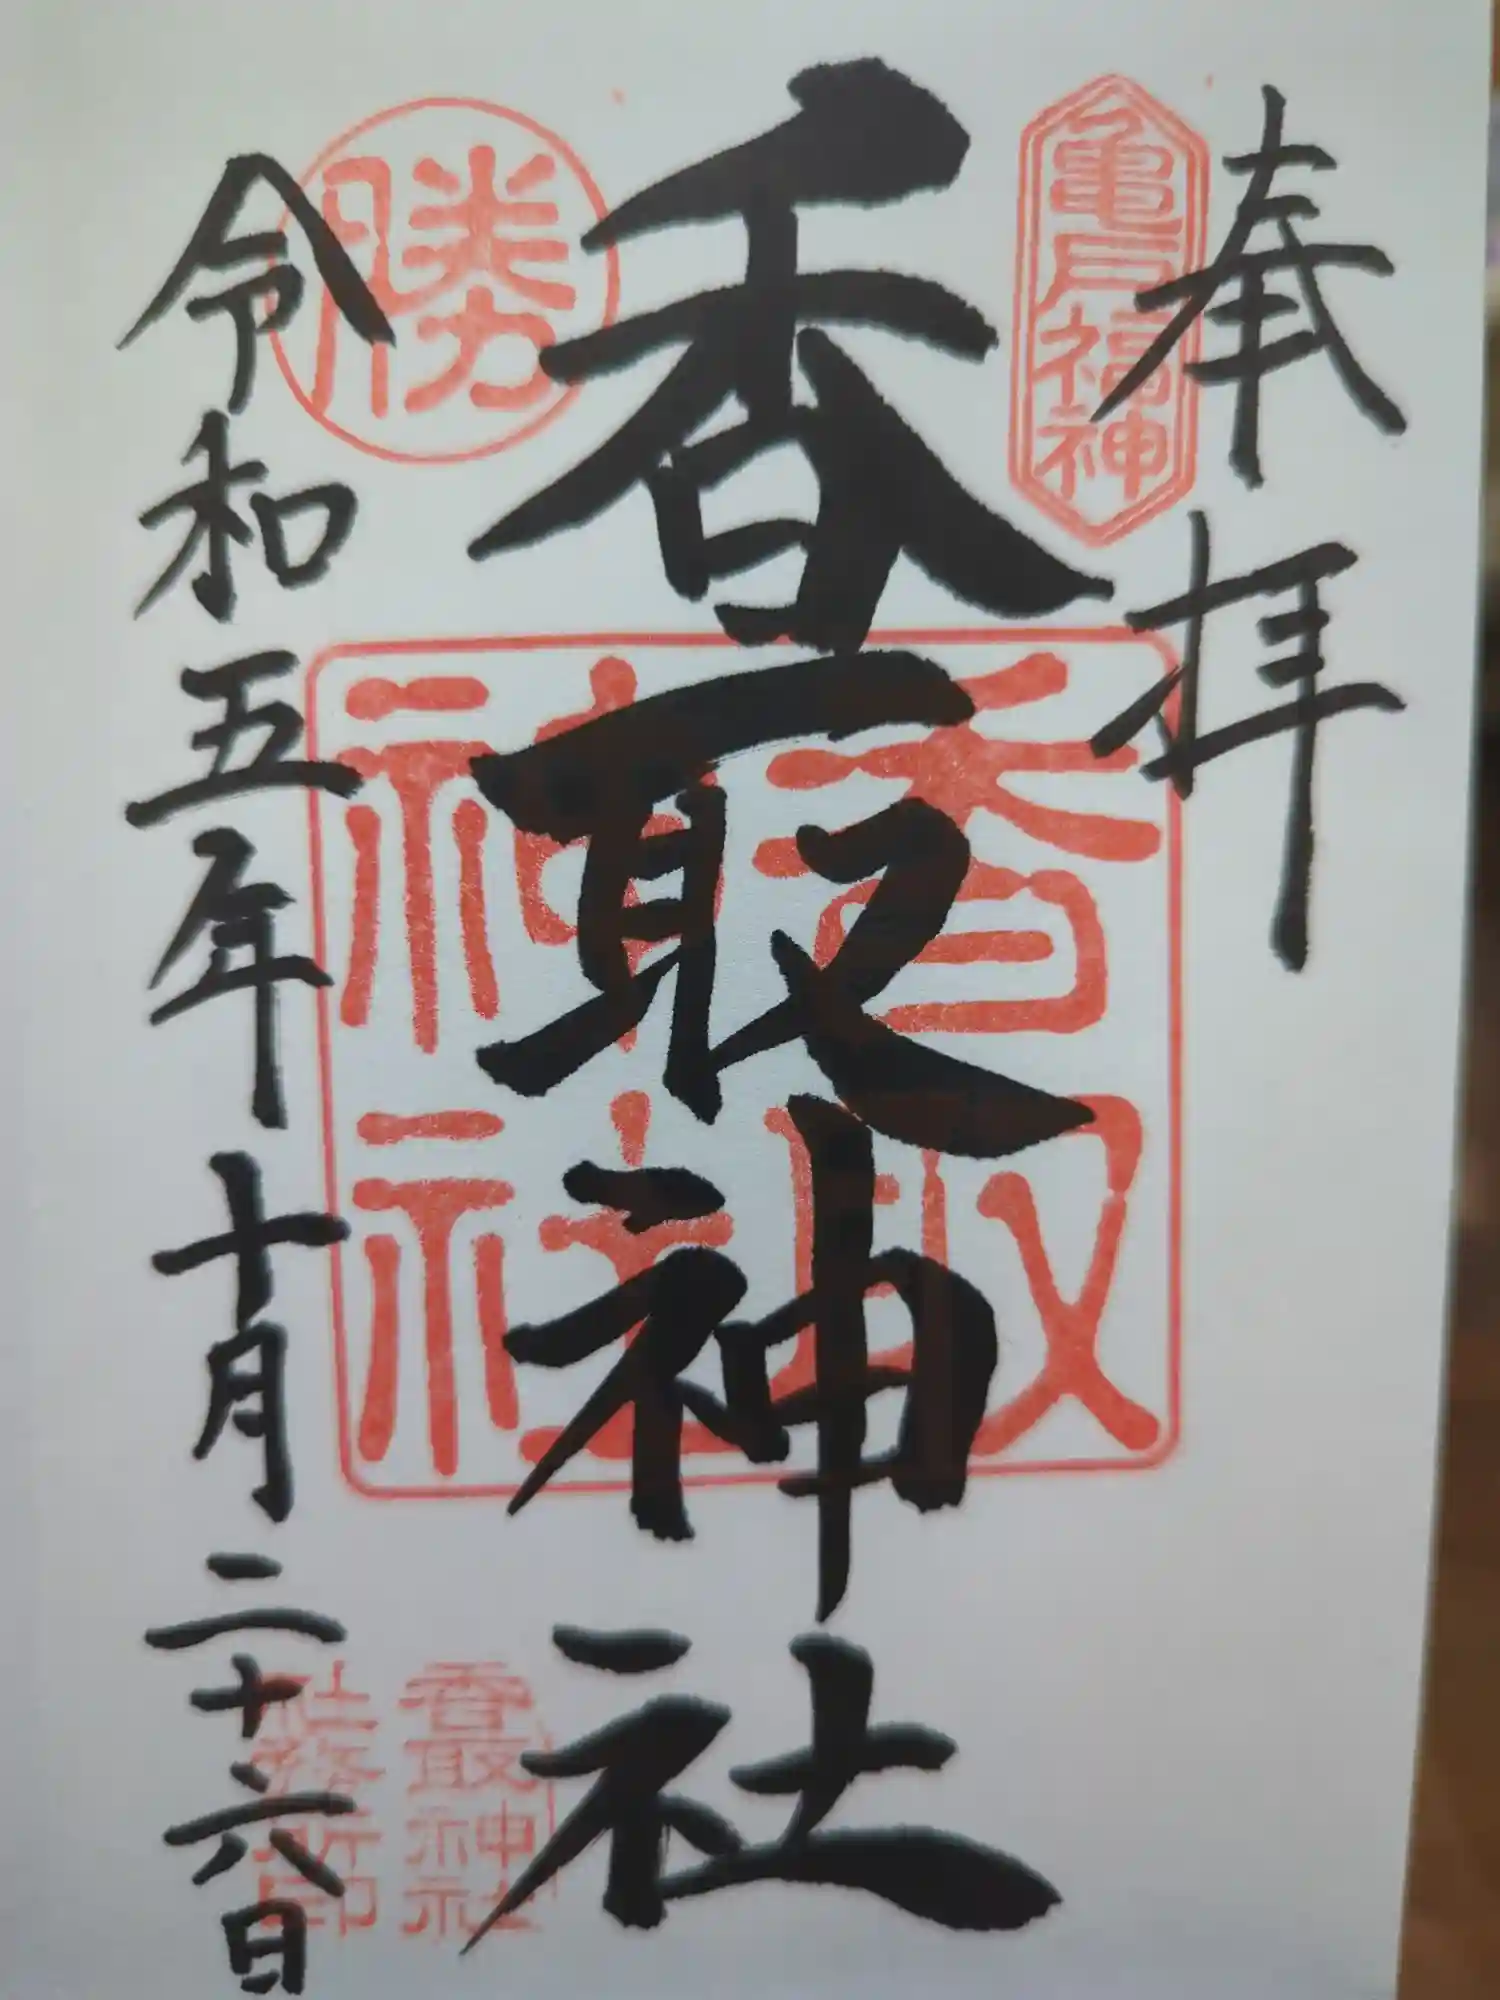 奉拝
亀戸福神
香取神社
香取神社
勝
令和五年十月二十六日
香取神社
社務所印